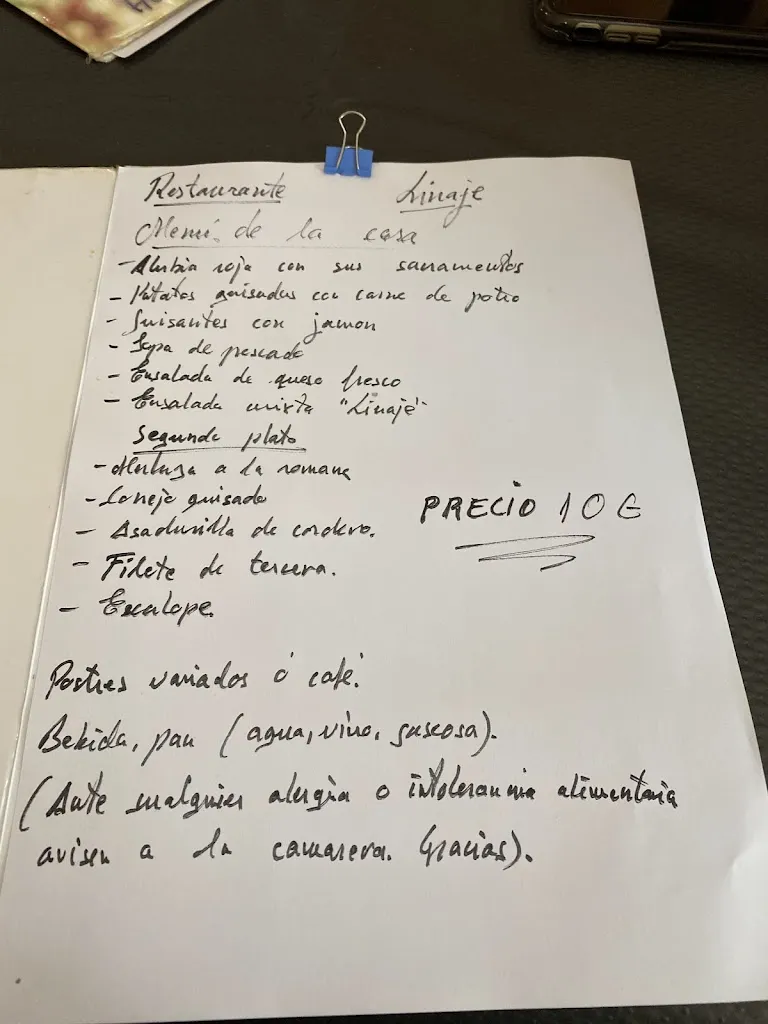 Restaurante Linaje
Menú de la casa
- Alubia roja con sus sacramentos
- Patatas guisadas con carne de potro
- Guisantes con jamon
- Sopa de pescado
- Ensalada de queso fresco
- Ensalada mixta "Linaje"
Segundo plato
- Merluza a la romana
- Conejo guisado
- Asadurilla de cordero.
- Filete de ternera.
- Escalope.
PRECIO 10 €
Postres variados ó café.
Bebida, pan (agua, vino, gaseosa).
(Ante cualquier alergia o intolerancia alimentaria
avisen a la camarera. Gracias).